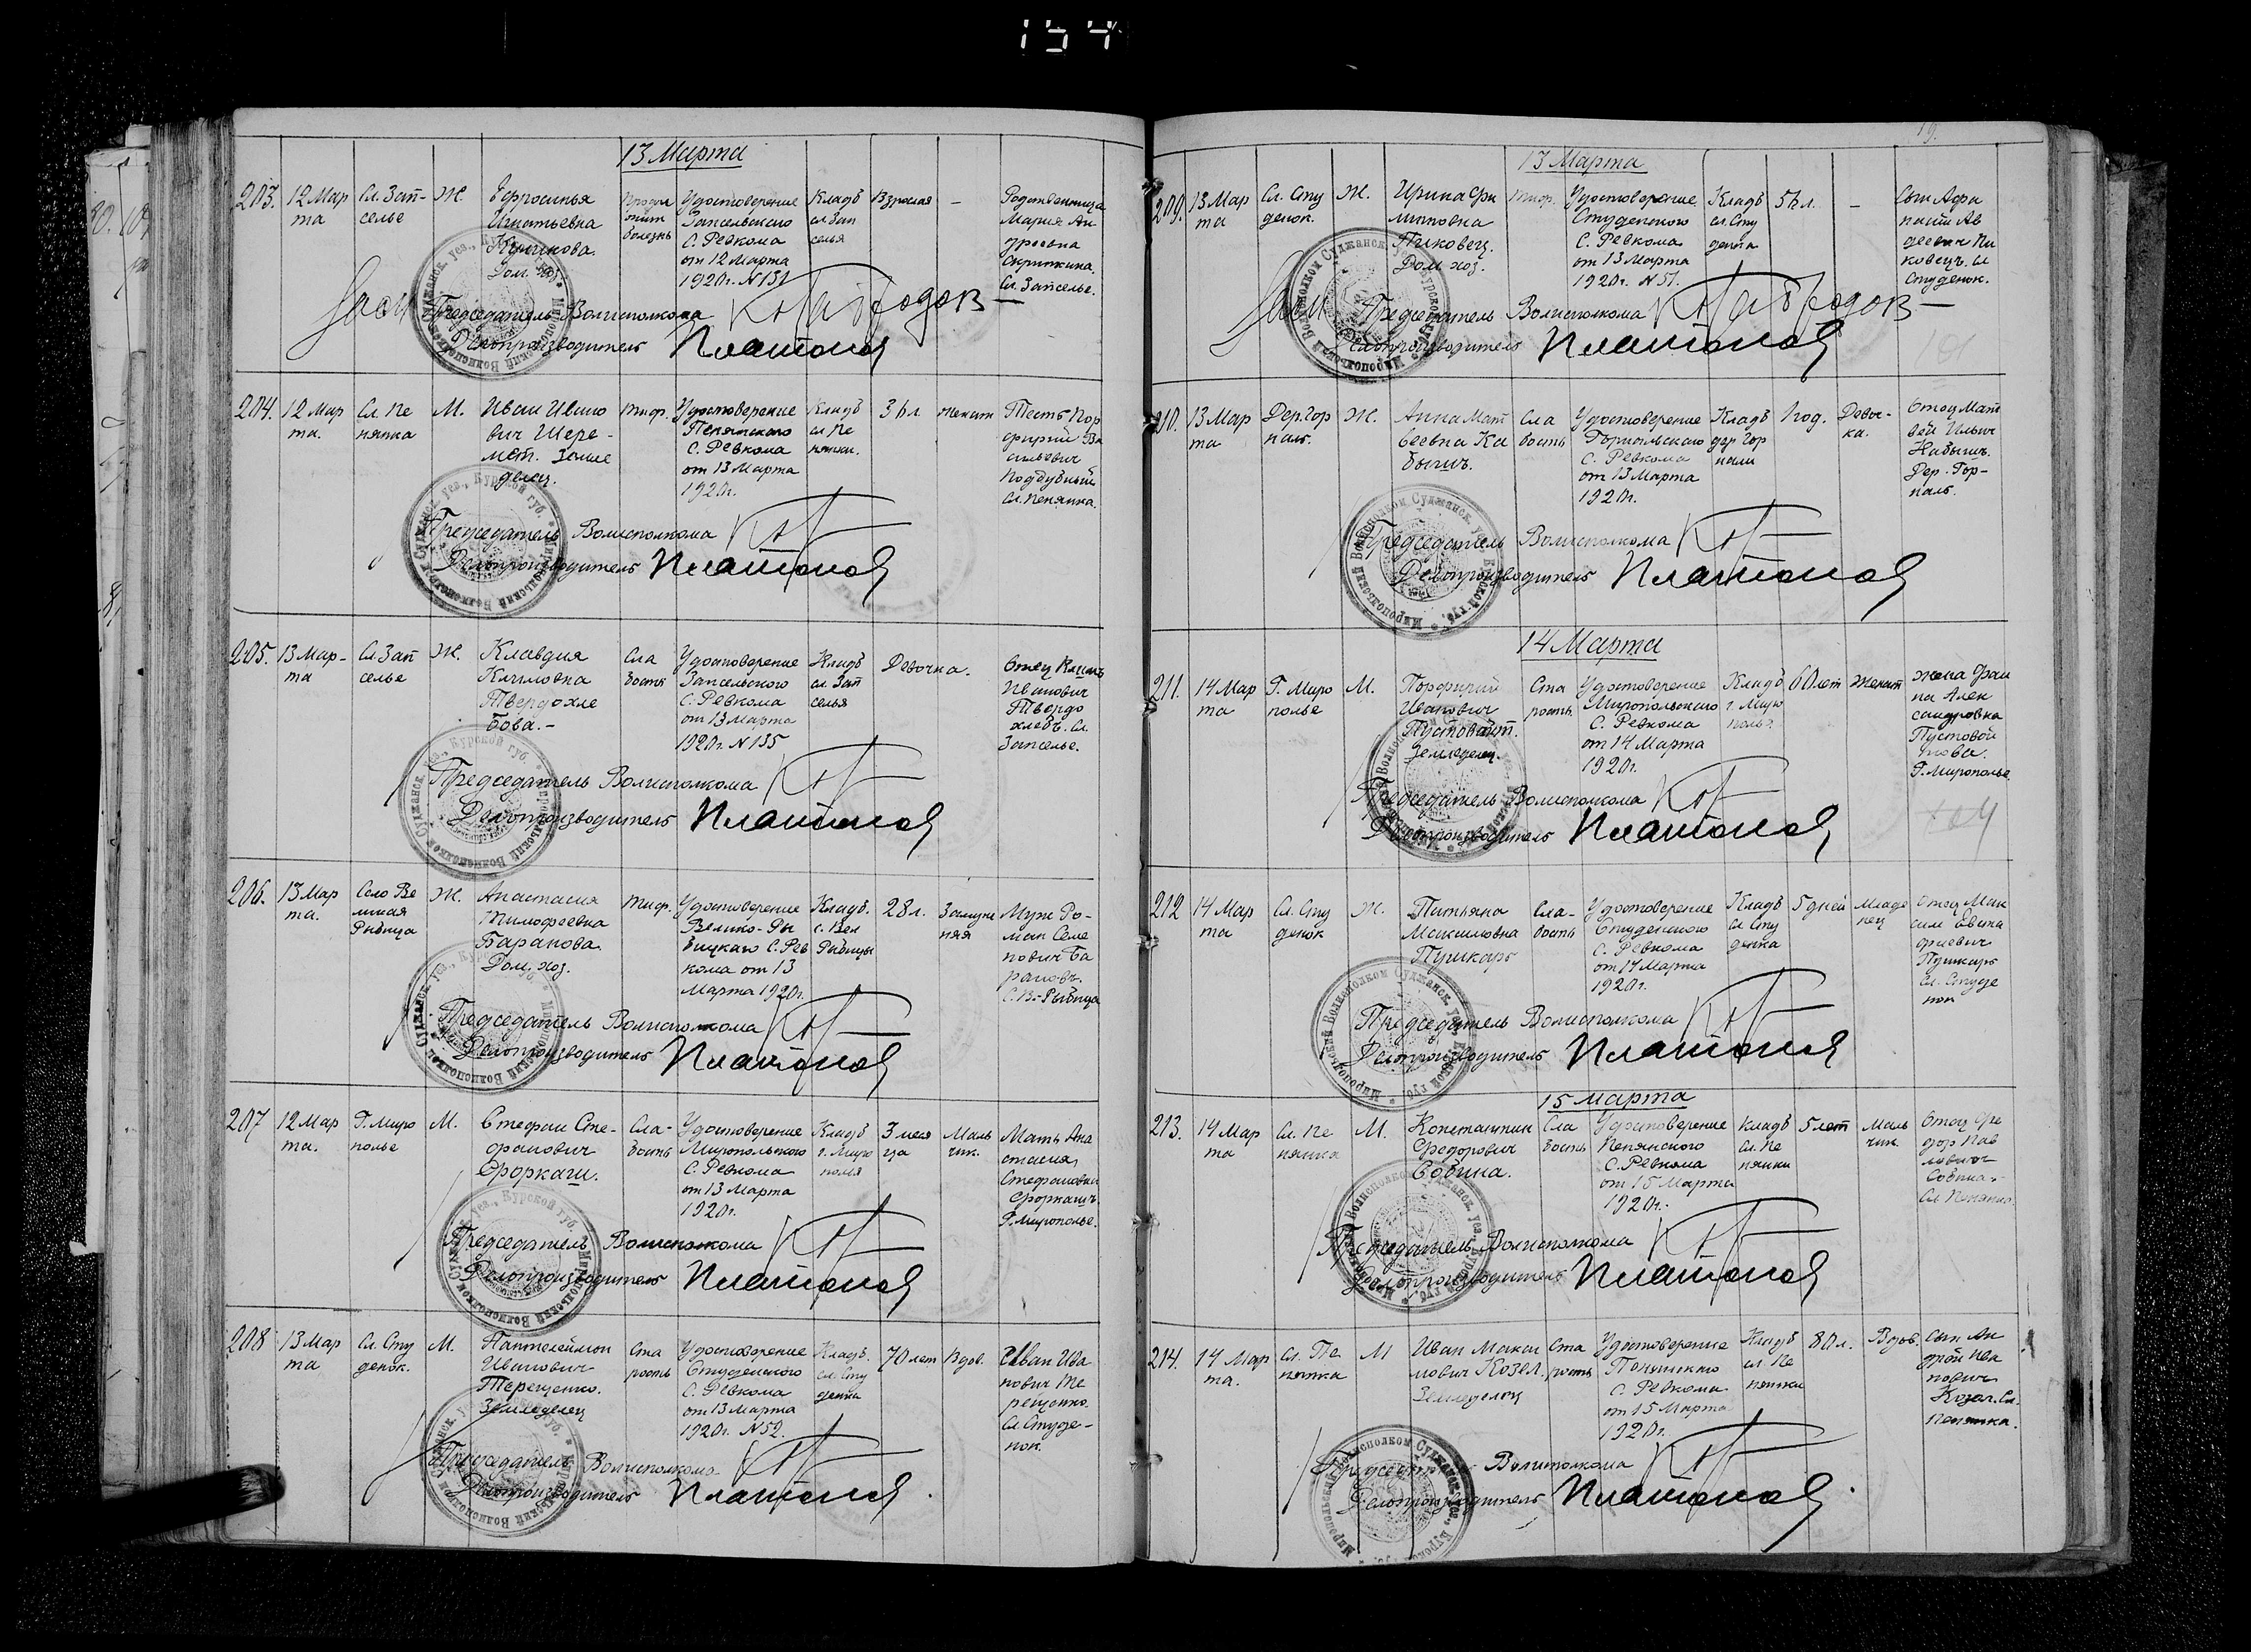 13 Марта
203.
12 Мар
та
Сл. Зап-
селье
Ж.
Ефросинья
Игнатьевна
Дом. хоз.
болезнь
Удостоверение
Запсельского
С. Ревкома
от 12 Марта
1920г. N 131
Кладб
сл Зап
селья
Взрослая
-
Родственница
Мария Ан
дреевна
Скрипкина.
Сл. Запселье.
Председатель Волисполкома
Делопроизводитель Платонов
204.
12 Мар
та.
Сл. Пе
нянка
М.
Иван Ивано
вич Шере-
мет. Земле
делец.
тиф.
Удостоверение
Пенянского
С. Ревкома
от 13 Марта
1920г.
Кладб
сл Пе
нянки.
36 л
женат
Тесть Пор
фирий Ва
сильевич
Поддубный
Сл. Пенянка.
Председатель Волисполкома
Делопроизводитель Платонов
205.
13 Мар-
та
Сл Зап
селье
Ж.
Клавдия
Климовна
Твердохле
бова.-
Сла
бость
Удостоверение
Запсельского
С. Ревкома
от 13 Марта
1920г. N 135
Кладб
сл. Зап
селья
Девочка.
Отец Климъ
Иванович
Твердо
хлебъ. Сл.
Запселье.
Председатель Волисполкома
Делопроизводитель Платонов
206.
13 Мар
та.
Село Ве
ликая
Рыбица
Ж.
Анастасия
Тимофеевна
Баранова.
Дом. хоз.
тиф.
Удостоверение
Велико-Ры
бицкаго С. Рев
кома от 13
Марта 1920г.
Кладб.
с. Вел
Рыбицы
28 л.
Замужня
няя
Муж Ро-
ман Семе
нович Ба
рановъ.
С. В.-Рыбица
Председатель Волисполкома
Делопроизводитель Платонов
207
12 Мар
та.
Г. Миро
полье
М.
Стефан Сте-
фанович
Форкаш.
Сла-
бость
Удостоверение
Миропольского
С. Ревкома
от 13 Марта
1920г.
Кладб
г. Миро
полья
3 меся
ца
Маль
чик.
Мать Ана
стасия
Стефановна
Г. Мирополье.
Председатель Волисполкома
Делопроизводитель Платонов
208
13 Мар
та
Сл. Сту
денок.
М.
Пантелеймон
Иванович
Терещенко.
Земледелец
Ста
рость
Удостоверение
Студенского
С. Ревкома
от 13 Марта
1920г. N 52.
Кладб.
сл. Сту
денка
70 лет
Вдов.
Иван Ива
нович Те
рещенко.
Сл Студе-
нок.
Председатель Волисполкома
Делопроизводитель Платонов
19.
13 Марта
209.
13 Мар
та
Сл. Сту
денок.
Ж.
Ирина Фи
липповна
Пиковец.
Дом хоз.
тиф.
Удостоверение
Студенского
С. Ревкома
от 13 Марта
1920г. N 51.
Кладб
сл. Сту
денка
-
Сын Афа
насий Ав
деевич Пи
ковецъ. Сл
Студенок.
Председатель Волисполкома
Делопроизводитель Платонов
210.
13 Мар
та
Дер. Гор
наль.
Ж.
Анна Мат
веевна Ка
быш.
Сла
бость
Удостоверение
Горнальского
С. Ревкома
от 13 Марта
1920г.
Кладб
дер Гор
нали
1 год.
Девоч-
ка.
Отец Мат
вей Ильич
Кабыш.
Дер. Гор-
наль.
Председатель Волисполкома
Делопроизводитель Платонов
14 Марта
211.
14 Мар
та
Г. Миро
полье
М.
Порфирий
Иванович
Пустовойт.
Земледелец.
Ста
рость.
Удостоверение
Миропольского
С. Ревкома
от 14 Марта
1920г.
Кладб
г. Миро
полья
60 лет
женат
жена Фаи
на Алек
сандровна
Пустовой
това.
Г. Мирополье
Председатель Волисполкома
Делопроизводитель Платонов
212
14 Мар
та
Сл. Сту
денок
Ж.
Татьяна
Максимовна
Пушкарь
Сла-
бость
Удостоверение
Студенского
С. Ревкома
от 14 Марта
1920г.
Кладб
сл Сту
денка
5 дней
Младе
нец
Отец Мак
сим Евста
фиевич
Пушкарь
Сл. Студе
нок
Председатель Волисполкома
Делопроизводитель Платонов
15 Марта
213.
14 Мар
та
Сл. Пе
нянка
М.
Константин
Федорович
Совина.
Сла
бость
Удостоверение
Пенянского
С. Ревкома
от 15 Марта
1920г.
Кладб
Сл. Пе
нянки
5 лет
Маль
чик.
Отец Фе
дор Пав
лович
Совина.-
Сл. Пенянка.
Председатель Волисполкома
Делопроизводитель Платонов
214.
14 Мар
та.
Сл. Пе
нянка
М
Иван Макси
мович Козел.
Земледелец
Ста
рость
Удостоверение
Пенянского
С. Ревкома
от 15 Марта
1920г.
Кладб
сл. Пе
нянки
80 л.
Вдов.
Сын Ан
дрей Ива
нович
Козел. Сл.
Пенянка.
Волисполкома
Делопроизводитель Платонов